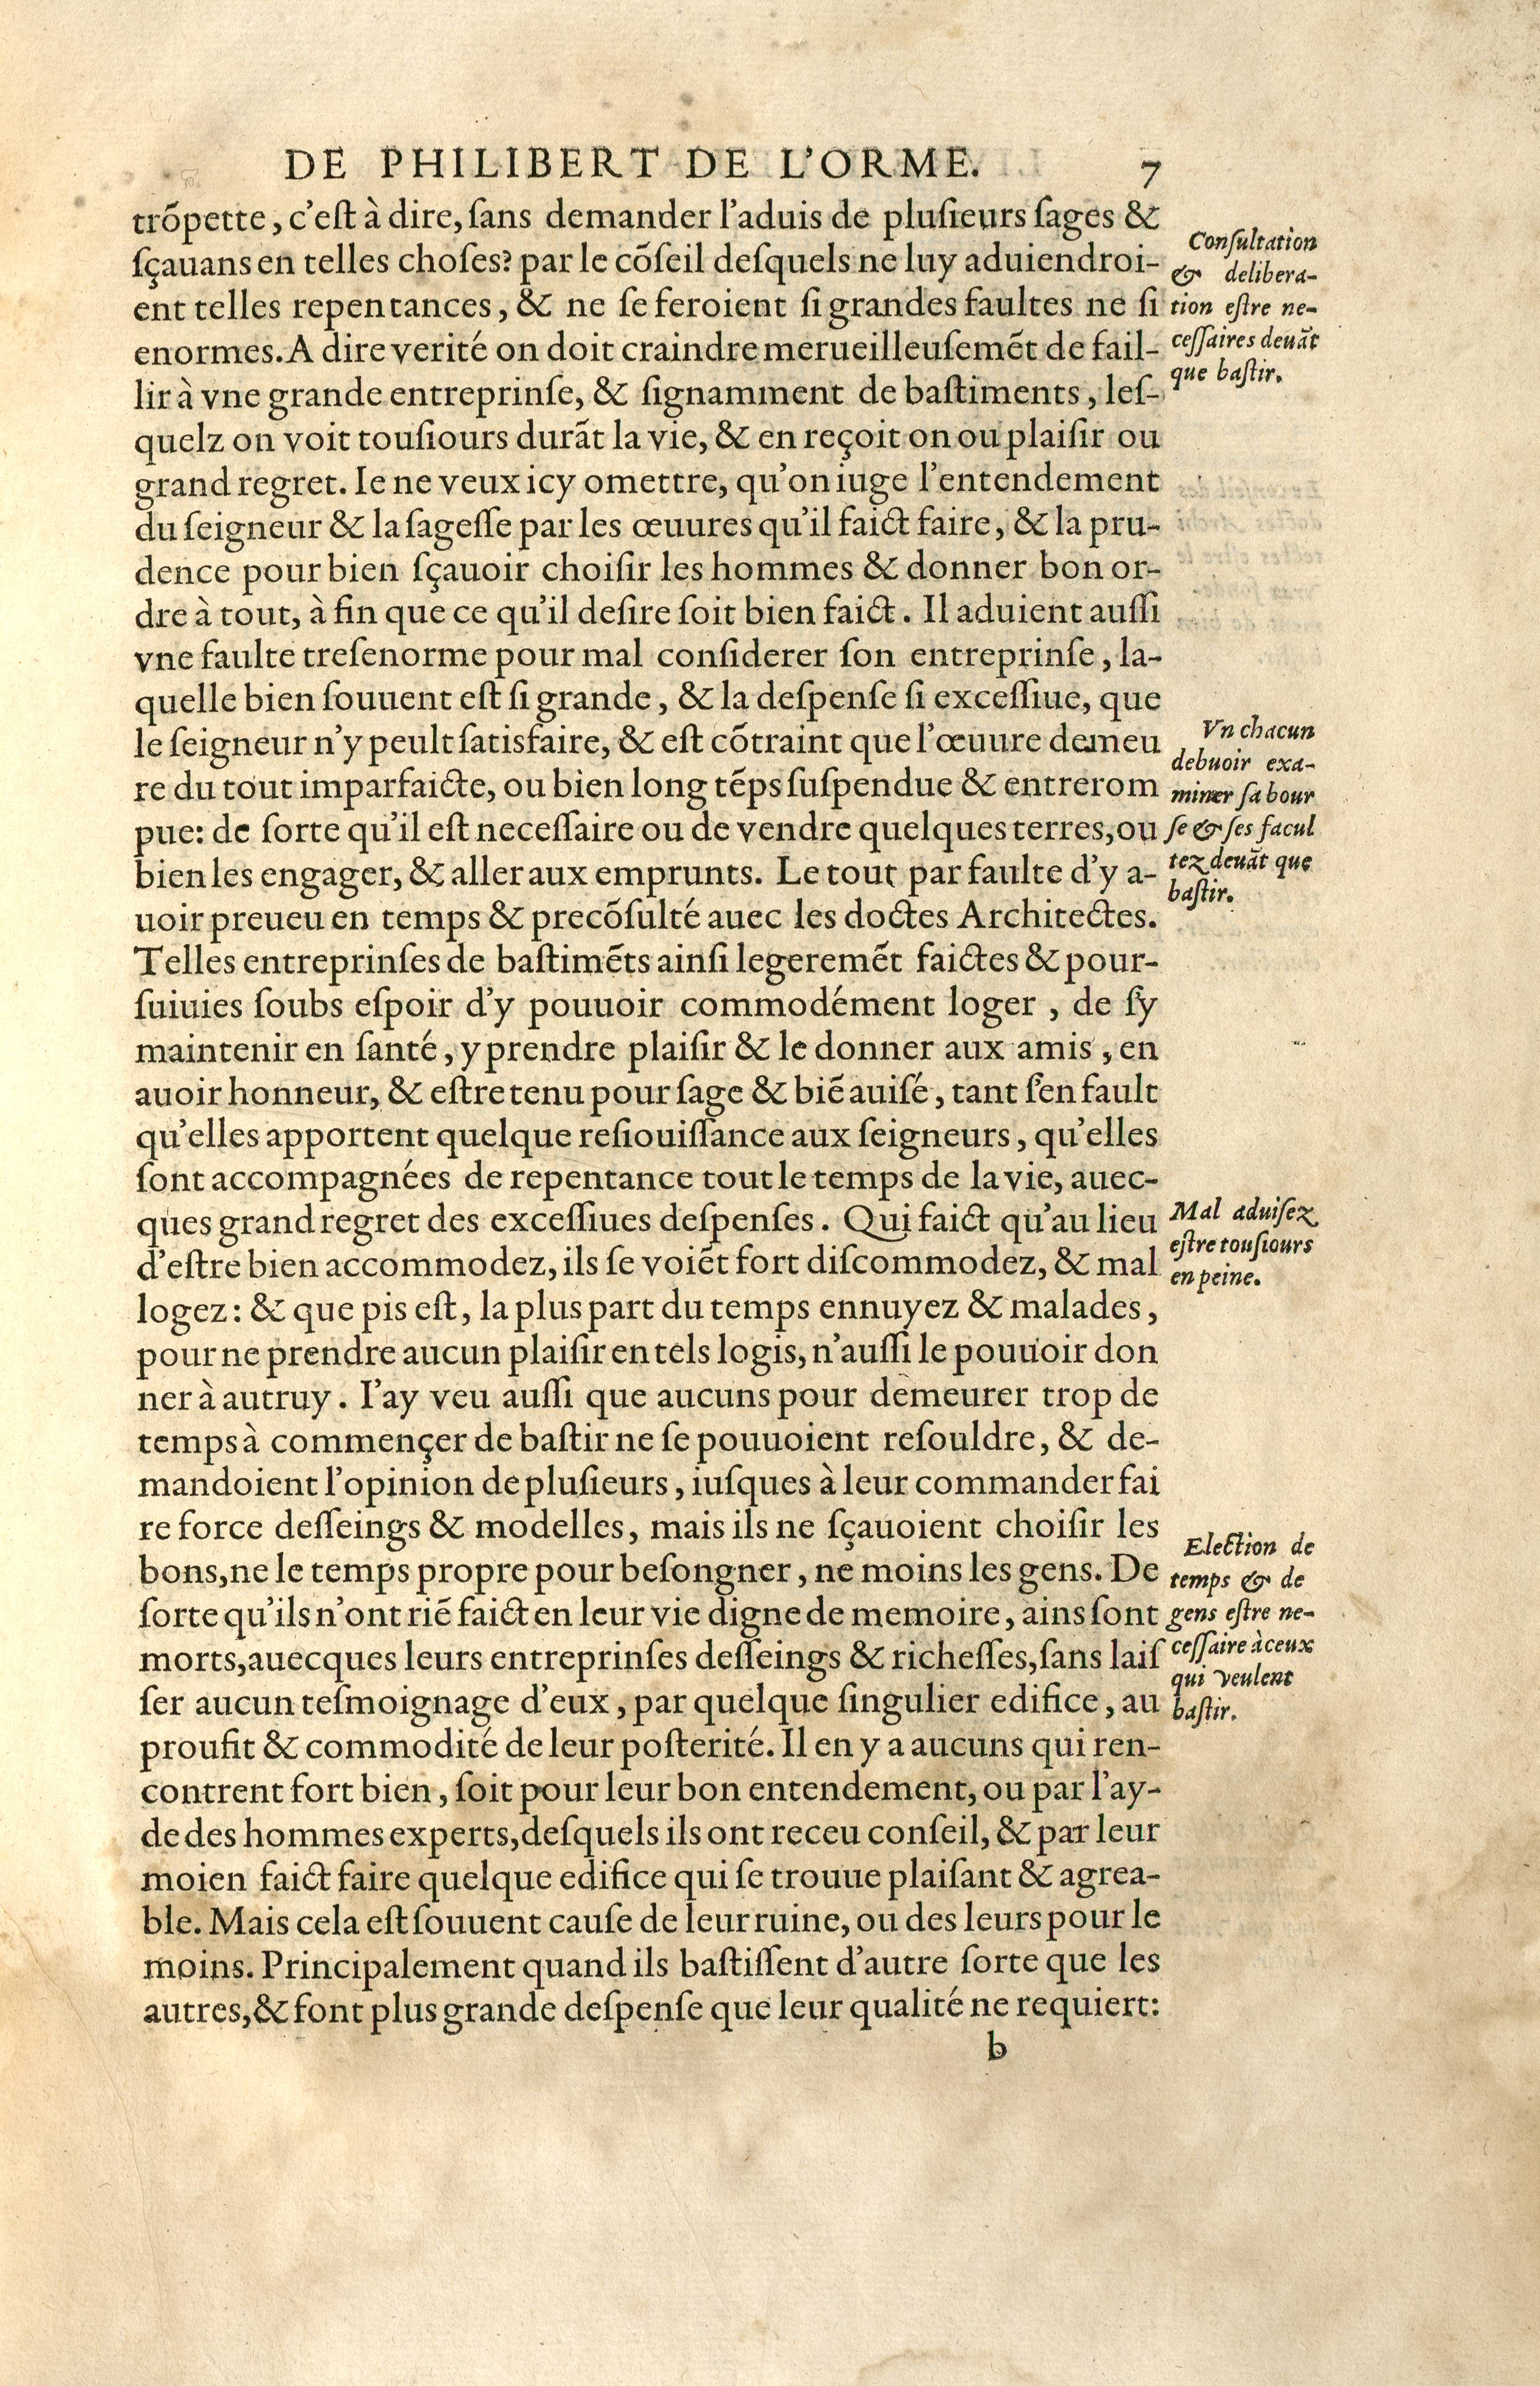 DE PHILIBERT DE L'ORME. 7
trõpette, c'eſt à dire, ſans demander l'aduis de pluſieurs ſages &
ſçauans en telles choſes? par le cõſeil deſquels ne luy aduiendroi-
ent telles repentances, & ne ſe feroient ſi grandes faultes ne ſi
enormes. A dire verité on doit craindre merueilleuſemẽt de fail-
lir à vne grande entreprinſe, & ſignamment de baſtiments, leſ-
quelz on voit touſiours durãt la vie, & en reçoit on ou plaiſir ou
grand regret. Ie ne veux icy omettre, qu'on iuge l'entendement
du ſeigneur & la ſageſſe par les œuures qu'il faict faire, & la pru-
dence pour bien ſçauoir choiſir les hommes & donner bon or-
dre à tout, à fin que ce qu'il deſire ſoit bien faict. Il aduient auſſi
vne faulte treſenorme pour mal conſiderer ſon entreprinſe, la-
quelle bien ſouuent eſt ſi grande, & la deſpenſe ſi exceſſiue, que
le ſeigneur n'y peult ſatisfaire, & eſt cõtraint que l'œuure demeu
re du tout imparfaicte, ou bien long tẽps ſuſpendue & entrerom
pue: de ſorte qu'il eſt neceſſaire ou de vendre quelques terres, ou
bien les engager, & aller aux emprunts. Le tout par faulte d'y a-
uoir preueu en temps & precõſulté auec les doctes Architectes.
Telles entreprinſes de baſtimẽts ainſi legeremẽt faictes & pour-
ſuiuies ſoubs eſpoir d'y pouuoir commodément loger, de ſ'y
maintenir en ſanté, y prendre plaiſir & le donner aux amis, en
auoir honneur, & eſtre tenu pour ſage & biẽ auiſé, tant ſ'en fault
qu'elles apportent quelque reſiouiſſance aux ſeigneurs, qu'elles
ſont accompagnées de repentance tout le temps de la vie, auec-
ques grand regret des exceſſiues deſpenſes. Qui faict qu'au lieu
d'eſtre bien accommodez, ils ſe voiẽt fort diſcommodez, & mal
logez: & que pis eſt, la plus part du temps ennuyez & malades,
pour ne prendre aucun plaiſir en tels logis, n'auſſi le pouuoir don
ner à autruy. I'ay veu auſſi que aucuns pour demeurer trop de
temps à commençer de baſtir ne ſe pouuoient reſouldre, & de-
mandoient l'opinion de pluſieurs, iuſques à leur commander fai
re force deſſeings & modelles, mais ils ne ſçauoient choiſir les
bons, ne le temps propre pour beſongner, ne moins les gens. De
ſorte qu'ils n'ont riẽ faict en leur vie digne de memoire, ains ſont
morts, auecques leurs entreprinſes deſſeings & richeſſes, ſans laiſ
ſer aucun teſmoignage d'eux, par quelque ſingulier edifice, au
proufit & commodité de leur poſterité. Il en y a aucuns qui ren-
contrent fort bien, ſoit pour leur bon entendement, ou par l'ay-
de des hommes experts, deſquels ils ont receu conſeil, & par leur
moien faict faire quelque edifice qui ſe trouue plaiſant & agrea-
ble. Mais cela eſt ſouuent cauſe de leur ruine, ou des leurs pour le
moins. Principalement quand ils baſtiſſent d'autre ſorte que les
autres, & font plus grande deſpenſe que leur qualité ne requiert:
b
Conſultation
& delibera-
tion eſtre ne-
ceſſaires deuãt
que baſtir.
Vn chacun
debuoir exa-
miner ſa bour
ſe & ſes facul
tez deuãt que
baſtir.
Mal aduiſez
eſtre touſiours
en peine.
Election de
temps & de
gens eſtre ne-
ceſſaire à ceux
qui veulent
baſtir.